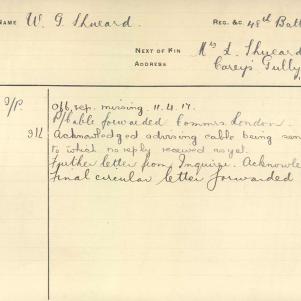 NAME W. G. Shueard REG. &C. 48th Batt
NEXT OF KIN Mrs L. Shueard
ADDRESS Careys Gully
Off. rep. missing. 11.4.17.
P/Cable forwarded Commrs. London.
Acknowledged advising cable being sen
to which no reply received as yet.
Further letter from Inquirer. Acknowle
Final circular letter forwarded